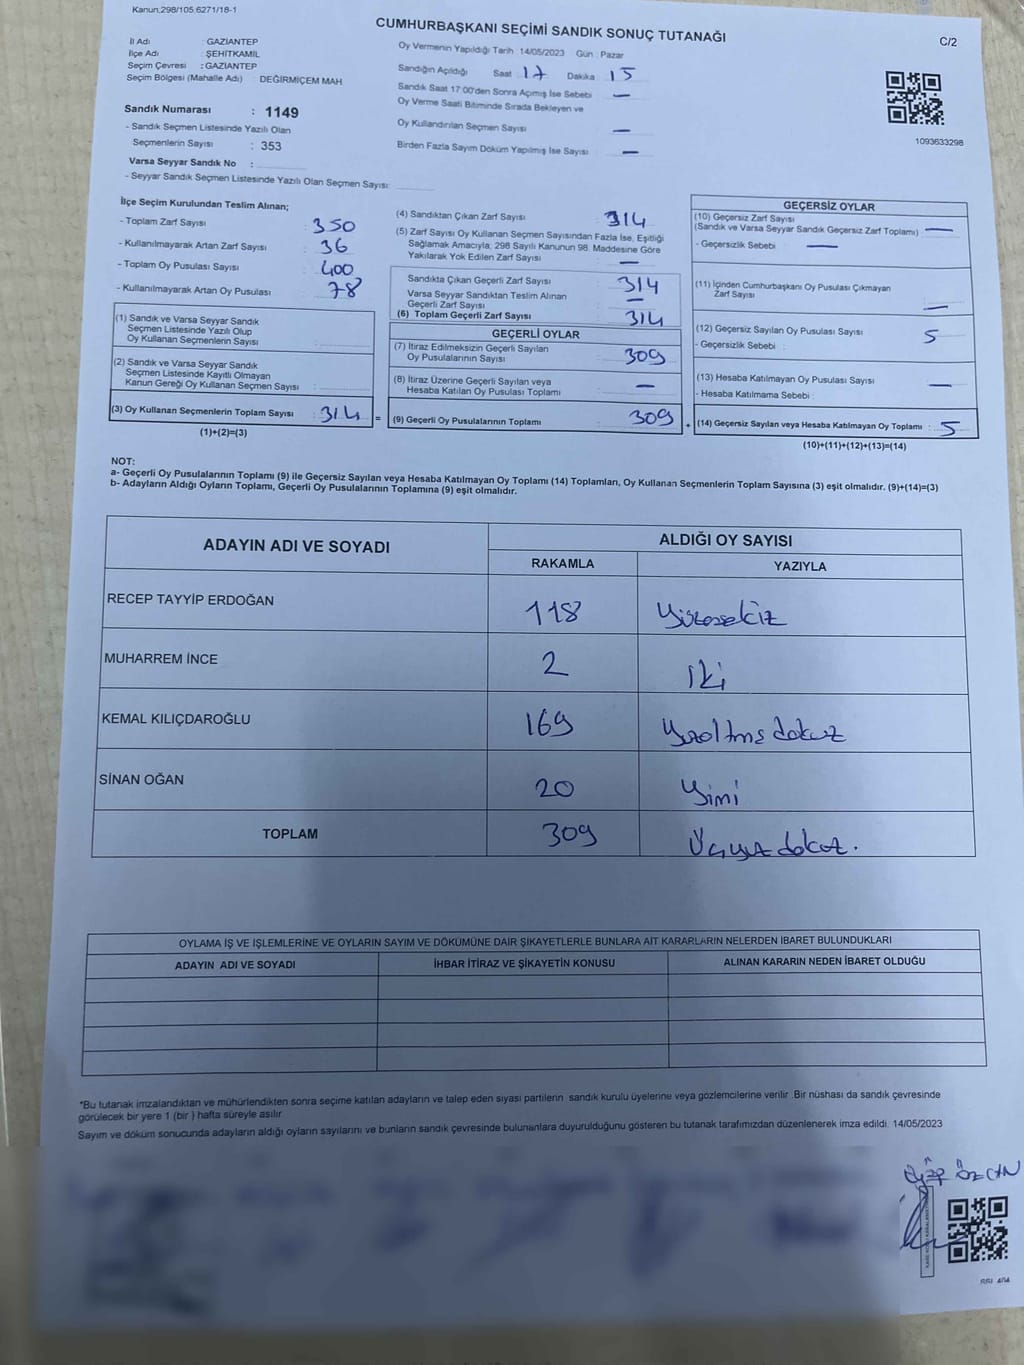 Kanun;298/105 6271/18-1
CUMHURBAŞKANI SEÇİMİ SANDIK SONUÇ TUTANAĞI
C/2
İl Adı : GAZİANTEP
İlçe Adı : ŞEHİTKAMİL
Seçim Çevresi : GAZİANTEP
Seçim Bölgesi (Mahalle Adı) : DEĞİRMİÇEM MAH
Sandık Numarası : 1149
- Sandık Seçmen Listesinde Yazılı Olan
Seçmenlerin Sayısı : 353
Varsa Seyyar Sandık No :
- Seyyar Sandık Seçmen Listesinde Yazılı Olan Seçmen Sayısı:
Oy Vermenin Yapıldığı Tarih :14/05/2023 Gün : Pazar
Sandığın Açıldığı Saat : 17 Dakika : 15
Sandık Saat 17:00'den Sonra Açımış İse Sebebi : —
Oy Verme Saati Bitiminde Sırada Bekleyen ve
Oy Kullandırılan Seçmen Sayısı : —
Birden Fazla Sayım Döküm Yapılmış İse Sayısı : —
1093633298
İlçe Seçim Kurulundan Teslim Alınan;
- Toplam Zarf Sayısı : 350
- Kullanılmayarak Artan Zarf Sayısı : 36
- Toplam Oy Pusulası Sayısı : 400
- Kullanılmayarak Artan Oy Pusulası : 78
(1) Sandık ve Varsa Seyyar Sandık
Seçmen Listesinde Yazılı Olup
Oy Kullanan Seçmenlerin Sayısı :
(2) Sandık ve Varsa Seyyar Sandık
Seçmen Listesinde Kayıtlı Olmayan
Kanun Gereği Oy Kullanan Seçmen Sayısı :
(3) Oy Kullanan Seçmenlerin Toplam Sayısı : 314 =
(1)+(2)=(3)
(4) Sandıktan Çıkan Zarf Sayısı : 314
(5) Zarf Sayısı Oy Kullanan Seçmen Sayısından Fazla İse, Eşitliği
Sağlamak Amacıyla; 298 Sayılı Kanunun 98. Maddesine Göre
Yakılarak Yok Edilen Zarf Sayısı : —
Sandıkta Çıkan Geçerli Zarf Sayısı : 314
Varsa Seyyar Sandıktan Teslim Alınan
Geçerli Zarf Sayısı : —
(6) Toplam Geçerli Zarf Sayısı : 314
GEÇERLİ OYLAR
(7) İtiraz Edilmeksizin Geçerli Sayılan
Oy Pusulalarının Sayısı : 309
(8) İtiraz Üzerine Geçerli Sayılan veya
Hesaba Katılan Oy Pusulası Toplamı : —
(9) Geçerli Oy Pusulalarının Toplamı : 309 +
GEÇERSİZ OYLAR
(10) Geçersiz Zarf Sayısı
(Sandık ve Varsa Seyyar Sandık Geçersiz Zarf Toplamı) : —
- Geçersizlik Sebebi : —
(11) İçinden Cumhurbaşkanı Oy Pusulası Çıkmayan
Zarf Sayısı : —
(12) Geçersiz Sayılan Oy Pusulası Sayısı : 5
- Geçersizlik Sebebi :
(13) Hesaba Katılmayan Oy Pusulası Sayısı : —
- Hesaba Katılmama Sebebi :
(14) Geçersiz Sayılan veya Hesaba Katılmayan Oy Toplamı : 5
(10)+(11)+(12)+(13)=(14)
NOT:
a- Geçerli Oy Pusulalarının Toplamı (9) ile Geçersiz Sayılan veya Hesaba Katılmayan Oy Toplamı (14) Toplamları, Oy Kullanan Seçmenlerin Toplam Sayısına (3) eşit olmalıdır. (9)+(14)=(3)
b- Adayların Aldığı Oyların Toplamı, Geçerli Oy Pusulalarının Toplamına (9) eşit olmalıdır.
ADAYIN ADI VE SOYADI ALDIĞI OY SAYISI
RAKAMLA YAZIYLA
RECEP TAYYİP ERDOĞAN 118
MUHARREM İNCE 2 İki
KEMAL KILIÇDAROĞLU 169 Yüzaltmş dokuz
SİNAN OĞAN 20 Yimi
TOPLAM 309 Üçyüz dokuz.
OYLAMA İŞ VE İŞLEMLERİNE VE OYLARIN SAYIM VE DÖKÜMÜNE DAİR ŞİKAYETLERLE BUNLARA AİT KARARLARIN NELERDEN İBARET BULUNDUKLARI
ADAYIN ADI VE SOYADI İHBAR İTİRAZ VE ŞİKAYETİN KONUSU ALINAN KARARIN NEDEN İBARET OLDUĞU
*Bu tutanak imzalandıktan ve mühürlendikten sonra seçime katılan adayların ve talep eden siyasi partilerin sandık kurulu üyelerine veya gözlemcilerine verilir .Bir nüshası da sandık çevresinde
görülecek bir yere 1 (bir ) hafta süreyle asılır
Sayım ve döküm sonucunda adayların aldığı oyların sayılarını ve bunların sandık çevresinde bulunanlara duyurulduğunu gösteren bu tutanak tarafımızdan düzenlenerek imza edildi. 14/05/2023
ÖZCAN